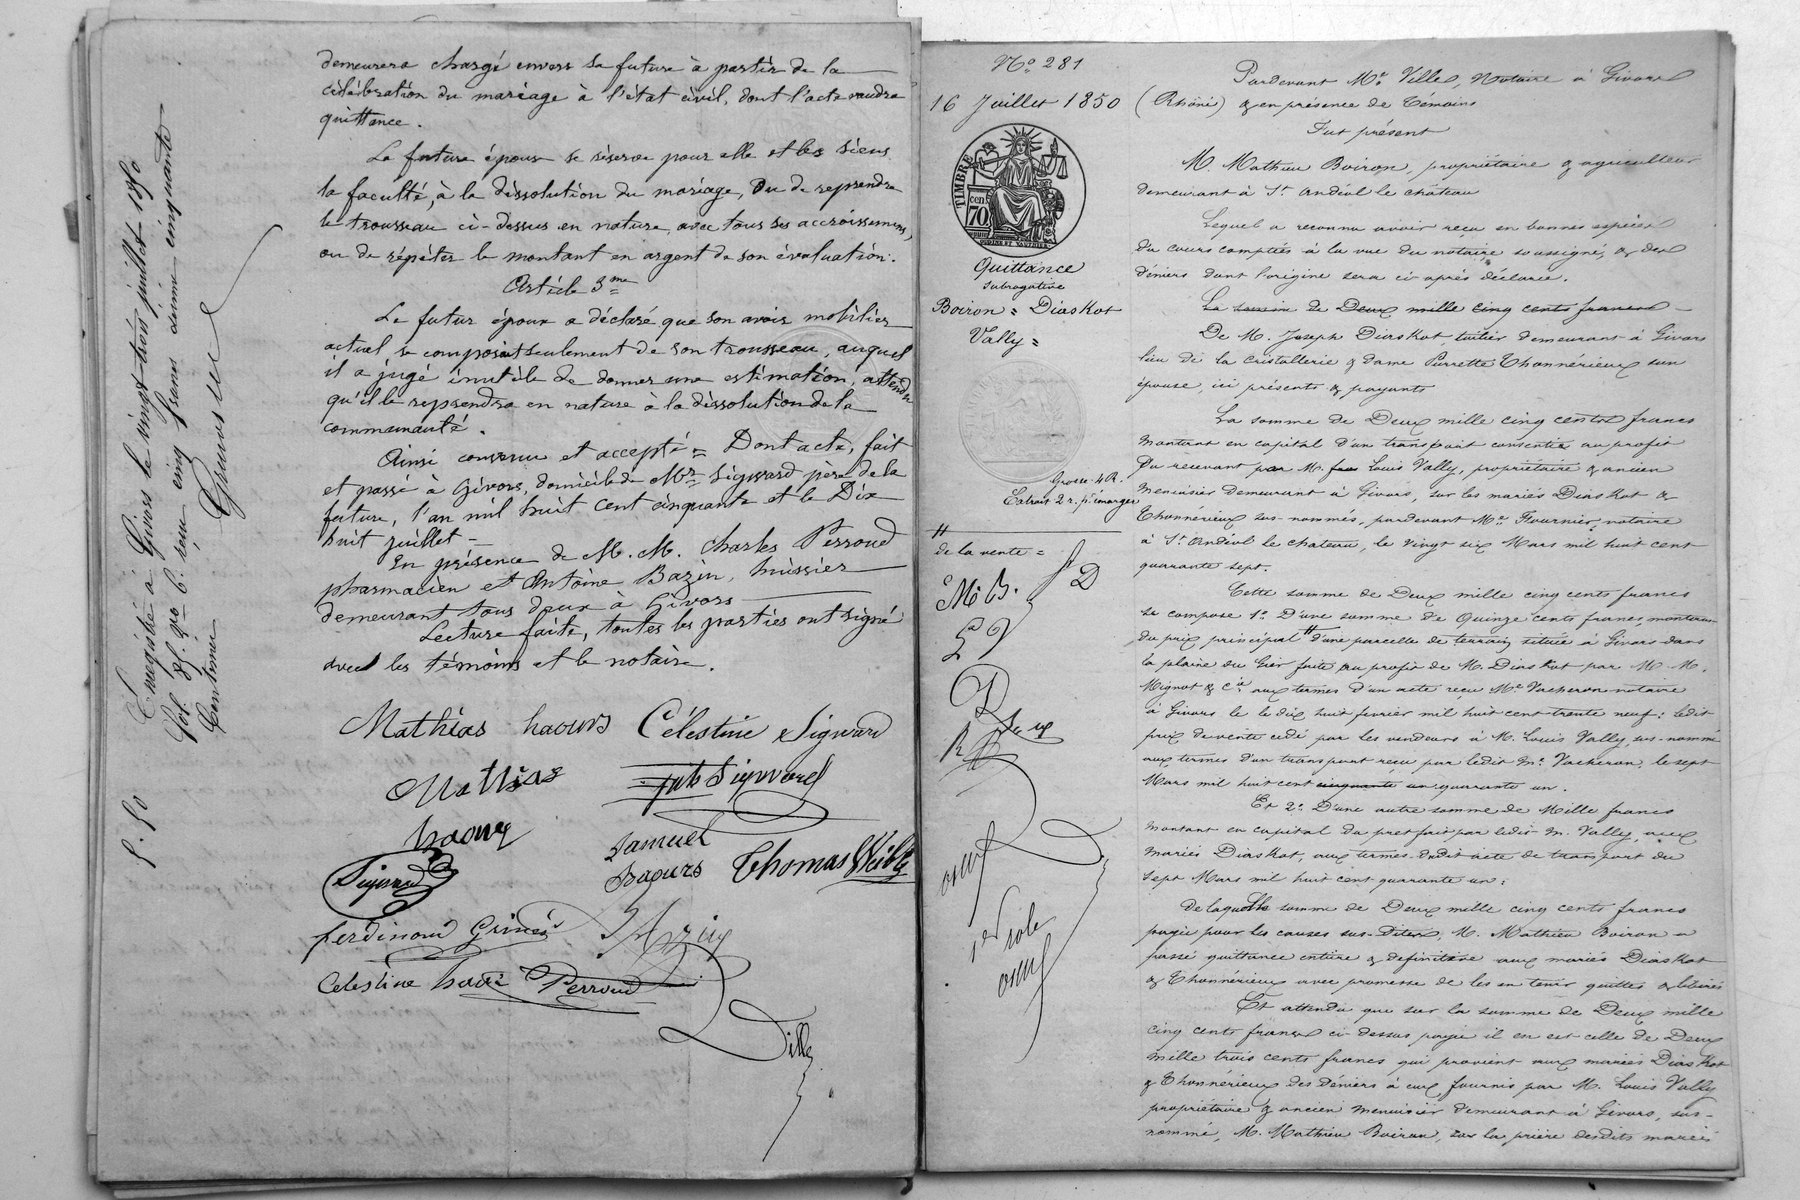 demeurera chargé envers sa future à partir de la
célébration du mariage à l'état civil, dont l'acte vaudra
quittance.
La future épouse se réserve pour elle et les siens
la faculté, à la dissolution du mariage, ou de reprendre
le trousseau ci-dessus en nature avec tous ses accroissemens,
ou de répéter le montant en argent de son évaluation.
Article 3me
Le futur époux a déclaré que son avoir mobilier
actuel, se composait seulement de son trousseau, auquel
il a jugé inutile de donner une estimation, attendu
qu'il le reprendra en nature à la dissolution de la
communauté.
Ainsi convenu et accepté = Dont acte, fait
et passé à Givors, domicile de Mr Sigward père de la
future, l'an mil huit cent cinquante et le Dix
huit juillet =
En présence de M. M. Charles Perroud
pharmacien et Antoine Bazin, huissier
demeurant tous deux à Givors
Lecture faite, toutes les parties ont signé
avec les témoins et le notaire.
Mathias haours Célestine Sigward
Mathias Sigward
haours Samuel
Sigward haours Thomas
ferdinand
Celestine Perroud
Ville
Enregistré à Givors le vingt trois juillet 1850
Vol. cinq francs décime cinquante
Centimes
5. 50
No 281
16 Juillet 1850
TIMBRE
cen 70
Quittance
subrogative
Boiron = Diaskot
Vally =
Grosse 4 R.
Extrait 2 r. pr émarger
# de la vente =
M. B. J D
L V
1er rôle
Pardevant Me Ville, Notaire à Givors
(Rhône) & en présence de Témoins
Fut présent
M. Mathieu Boiron, propriétaire & agriculteur
demeurant à St Andéol le château
Lequel a reconnu avoir reçu en bonnes espèces
du cours comptées à la vue du notaire soussigné, & des
deniers dont l'origine sera ci après déclarée.
La somme de Deux mille cinq cents francs
De M. Joseph Diaskot, tuilier demeurant à Givors
lieu de la Cristallerie & dame Pierrette Thonnérieux son
épouse, ici présents & payants
La somme de Deux mille cinq cents francs
montant en capital d'un transport consentie au profit
du recevant par M. Louis Vally, propriétaire & ancien
menuisier demeurant à Givors, sur les mariés Diaskot &
Thonnérieux sus-nommés, pardevant Me Fournier, notaire
à St Andéol le chateau, le vingt six Mars mil huit cent
quarante sept.
Cette somme de Deux mille cinq cents francs
se compose 1º D'une somme de Quinze cents francs montant
du prix principal # d'une parcelle de terrain située à Givors dans
la plaine du Gier faite au profit de M. Diaskot par M. M.
Mignot & Cie aux termes d'un acte reçu Me Vacheron notaire
à Givors le le dix huit fevrier mil huit cent trente neuf: ledit
prix de vente cédé par les vendeurs à M. Louis Vally, sus-nommé
aux termes d'un transport reçu par ledit Me Vacheron, le sept
Mars mil huit cent cinquante un quarante un.
Et 2º D'une autre somme de Mille francs
montant en capital du pret fait par ledit M. Vally, aux
mariés Diaskot, aux termes dudit acte de transport du
sept Mars mil huit cent quarante un:
De laquelle somme de Deux mille cinq cents francs
payée pour les causes sus-dites, M. Mathieu Boiron a
passé quittance entière & définitive aux mariés Diaskot
& Thonnérieux avec promesse de les en tenir quittes & libérés
Et attendu que sur la somme de Deux mille
cinq cents francs ci-dessus payée il en est celle de Deux
mille trois cents francs qui provient aux mariés Diaskot
& Thonnérieux des Déniers à eux fournis par M. Louis Vally
propriétaire & ancien menuisier demeurant à Givors, sus-
nommé, M. Mathieu Boiron, sur la prière desdits mariés